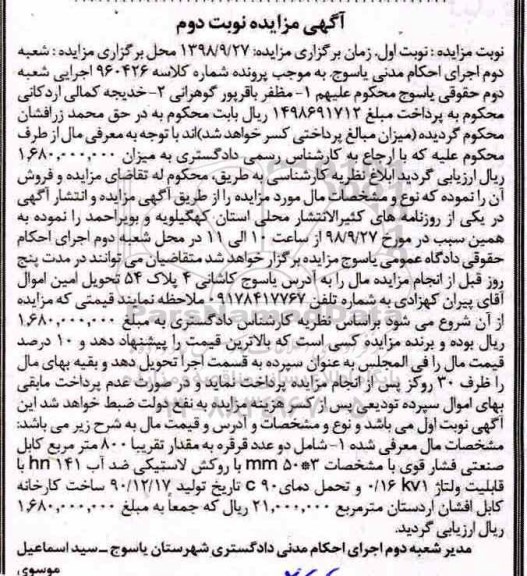 آگهی مزایده نوبت دوم
نوبت مزایده : نوبت اول. زمان برگزاری مزایده: ۱۳۹۸/۹/۲۷ محل برگزاری مزایده : شعبه
دوم اجرای احکام مدنی یاسوج. به موجب پرونده شماره کلاسه ۹۶۰۴۲۶ اجرایی شعبه
دوم حقوقی یاسوج محکوم علیهم ۱- مظفر باقرپور گوهرانی ۲-خدیجه کمالی اردکانی
محکوم به پرداخت مبلغ ۱۴۹۸۶۹۱۷۱۲ ریال بابت محکوم به در حق محمد زرافشان
محکوم گردیده (میزان مبالغ پرداختی کسر خواهد شد)اند با توجه به معرفی مال از طرف
محکوم علیه که با ارجاع به کارشناس رسمی دادگستری به میزان ۱,۶۸۰,۰۰۰,۰۰۰
ریال ارزیابی گردید ابلاغ نظریه کارشناسی به طریق، محکوم له تقاضای مزایده و فروش
آن را نموده که نوع و مشخصات مال مورد مزایده را از طریق آگهی مزایده و انتشار آگهی
در یکی از روزنامه های کثیرالانتشار محلی استان کهگیلویه و بویراحمد را نموده به
همین سبب در مورخ ۹۸/۹/۲۷ از ساعت ۱۰ الی ۱۱ در محل شعبه دوم اجرای احکام
حقوقی دادگاه عمومی یاسوج مزایده برگزار خواهد شد متقاضیان می توانند در مدت پنج
روز قبل از انجام مزایده مال را به آدرس یاسوج کاشانی ۴ پلاک ۵۴ تحویل امین اموال
آقای پیران کهزادی به شماره تلفن ۰۹۱۷۸۴۱۷۷۶۷ ملاحظه نمایند قیمتی که مزایده
از آن شروع می شود براساس نظریه کارشناس دادگستری به مبلغ ۱,۶۸۰,۰۰۰,۰۰۰
ریال بوده و برنده مزایده کسی است که بالاترین قیمت را پیشنهاد دهد و ۱۰ درصد
قیمت مال را فی المجلس به عنوان سپرده به قسمت اجرا تحویل دهد و بقیه بهای مال
را ظرف ۳۰ روکز پس از انجام مزایده پرداخت نماید و در صورت عدم پرداخت مابقی
بهای اموال سپرده تودیعی پس از کسر هزینه مزایده به نفع دولت ضبط خواهد شد این
آگهی نوبت اول می باشد و نوع و مشخصات و آدرس و قیمت مال به شرح زیر می باشد:
مشخصات مال معرفی شده ۱-شامل دو عدد قرقره به مقدار تقریبا ۸۰۰ متر مربع کابل
صنعتی فشار قوی با مشخصات ۳*۵۰ mm با روکش لاستیکی ضد آب hn ۱۴۱ با
قابلیت ولتاژ ۰/۱۶ kv۱ و تحمل دمای ۹۰ c تاریخ تولید ۹۰/۱۲/۱۷ ساخت کارخانه
کابل افشان اردستان مترمربع ۲۱,۰۰۰,۰۰۰ ریال که جمعاً به مبلغ ۱,۶۸۰,۰۰۰,۰۰۰
ریال ارزیابی گردید.
مدیر شعبه دوم اجرای احکام مدنی دادگستری شهرستان یاسوج – سید اسماعیل
موسوی
ParsNamadData